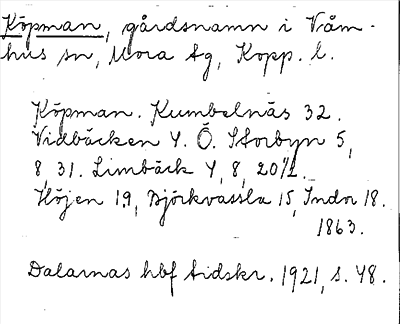 Köpman, gårdsnamn i Våm-
hus sn, Mora tg, Kopp. l.
Köpman. Kumbelnäs 32.
Vidbäcken 4. Ö. Storbyn 5,
8, 31. Limbäck 4, 8, 20½.
Höjen 19, Björkvassla 15, Indor 18.
1863.
Dalarnas hbf tidskr. 1921, s. 48.